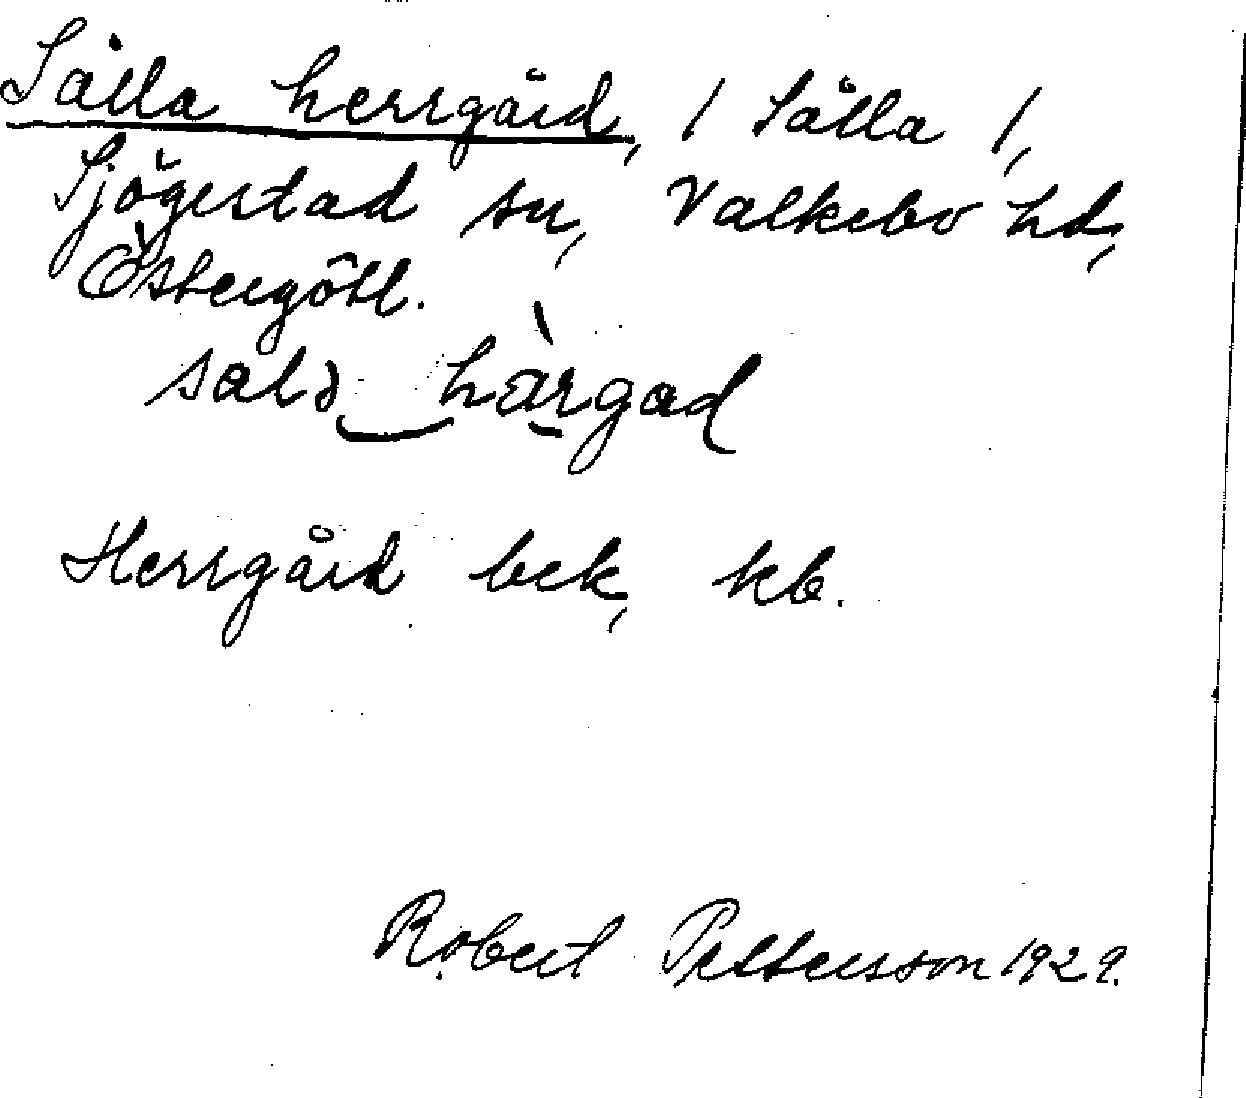 Sålla herrgård, / Sålla /,
Sjögestad sn, Valkebo hd,
Östergötl.
salɔ‿hàrgad
Herrgård bek, kb.
Robert Pettersson 1929.